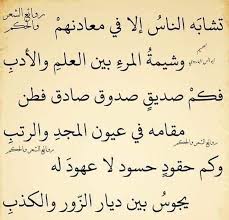 روائع الشعر
والحكم
تشابَه الناسُ إلا في معادنهمْ
وشيمةُ المرءِ بين العلمِ والأدبِ
فكمْ صديقٍ صدوق صادق فطن
روائع الشعر والحكم
مقامه في عيون المجدِ والرتبِ
روائع الشعر والحكم
وكم حقودٍ حسود لا عهودَ له
يجوسُ بين ديار الزّور والكذبِ